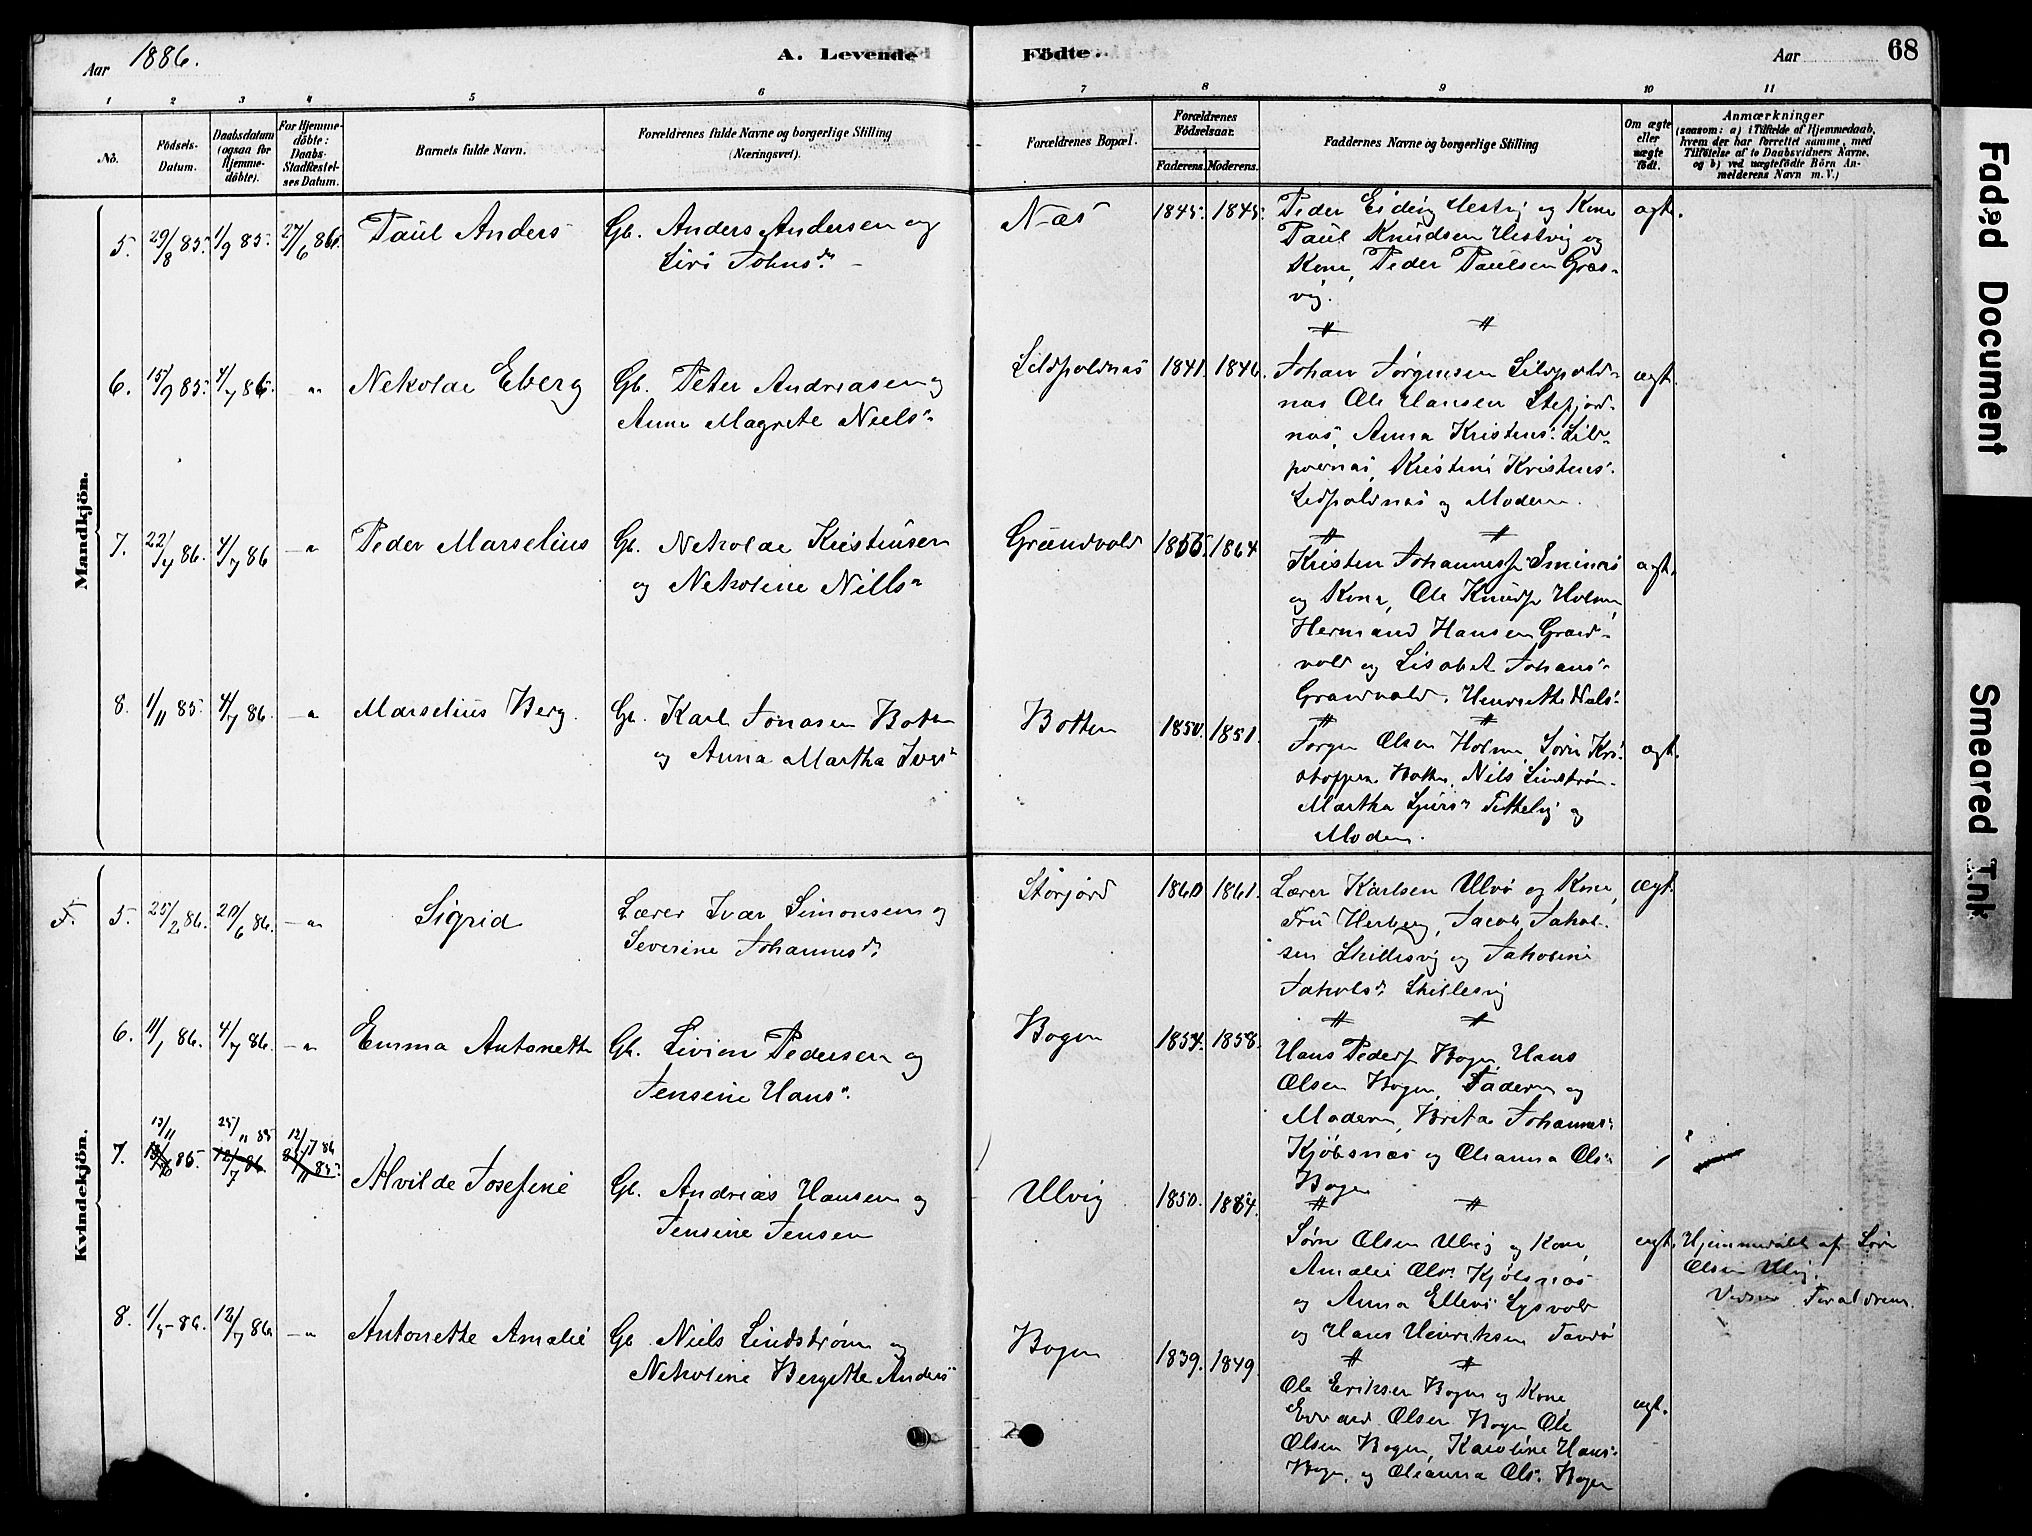 Aar 1886.
A. Levende Födte.
Aar 68
1 2 3 4 5 6 7 8 9 10 11
No.
Födsels-Datum.
Daabsdatum (ogsaa for Hjemme-döbte).
For Hjemme-döbte: Daabs-Stadfæstel-ses Datum.
Barnets fulde Navn.
Forældrenes fulde Navne og borgerlige Stilling (Næringsvei).
Forældrenes Bopæl.
Forældrenes Födselsaar.
Faderens. Moderens.
Faddernes Navne og borgerlige Stilling
Om ægte eller uægte födt.
Anmærkninger
(saasom: a) i Tilfælde af Hjemmedaab,
hvem der har forrettet samme, med
Tilföielse af to Daabsvidners Navne,
og b) ved uægtefödte Börn An-
melderens Navn m. V.)
Mandkjön.
5. 29/8 85. 1/9 85. 27/6 86. Paul Anders
Gb. Anders Andersen og
Siri Johnsdr. –
Næs 1845. 1845.
Peder Eiding Hestvig og Kone
Paul Knudsen Hestvig og
Kone, Peder Paulsen Græs-
vig.
ægt.
6. 15/9 85. 4/7 86. Nekolde Eberg
Gb. Peter Andreasen og
Anne Magrete Niels
Sildpoldnæs 1841. 1846.
Johan Jørgensen Sildpold-
næs Ole Hansen
næs, Anna Kristens.
Kristine Kristens.
Sildpoldnæs og Moderen.
ægt.
7. 22/4 86. 4/7 86 Peder Marselius
Gb. Nekolde Kristensen
og Nekoline Nills
Grændvold 1864
Kristen
og Kone, Ole Knudsen Holmen,
Hermand Hansen Grænd-
vold og Lisabet Johans
Grændvold. Henrette Niels
ægt.
8. 1/11 85. 4/7 86. Marselius Berg.
Gb. Karl Jonasen Botten
og Anna Martha Ivers
Botten 1850. 1851.
Jørgen Olsen Holmen, Sørn Kri-
stoffersen Botten, Nils Lindstrøm
Martha og
Moderen.
ægt.
Kvindekjön.
F. 5. 25/2 86. 20/6 86. Sigrid
Lærer Ivar Simonsen og
Severine Johannesdr.
Storjord 1860 1861.
Lærer Karlsen Ulvö og Kone,
Fru Herberg, Jacob Jakob-
sen Skillesvig og Jakobine
Jakobsdr. Skillesvig
ægt.
6. 11/1 86. 4/7 86. Emma Antonette
Gb. Sivien Pedersen og
Jensine Hans
Bogen 1854. 1858.
Hans Peders Bogen, Hans
Olsen Bogen, Faderen og
Moderen, Breta Johannes
Kjöbsnæs og Olianna Ols
Bogen
7. 13/11 85. 25/11 85 12/7 86 Alvilde Josefine
Gb. Andreas Hansen og
Jensine Jensen
Ulvig 1850. 1864.
Sørn Olsen Ulvig og Kone,
Amalie Ols Kjöbsnæs
og Anna Ellevs Lysvold
og Hans Henriksen
ægt.
Hjemmedøbt af Sørn
Olsen Ulvig.
Vidner Forældrene.
8. 12/7 86 Antonette Amalie
Gb. Niels Lindstrøm og
Nekoline Bergitte Anders
Bogen 1839. 1849.
Ole Eriksen Bogen og Kone,
Edvard Olsen Bogen Ole
Olsen Bogen, Karoline Hans
Bogen, og Olianna Ols. Bogen
ægt.
Faded Document
Smeared Ink